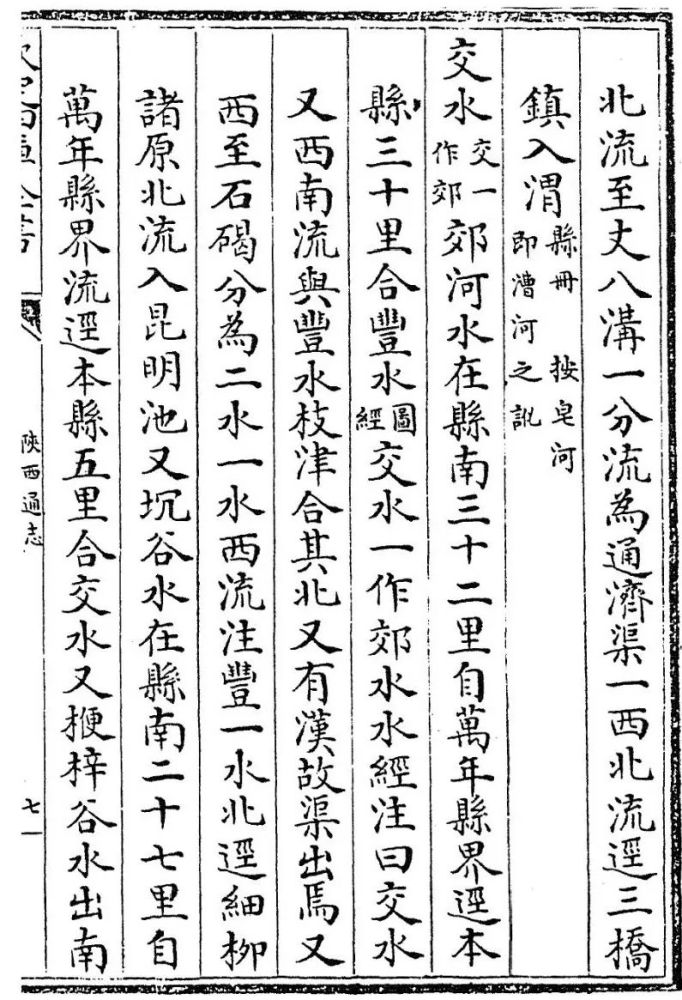 北流至丈八溝一分流為通濟渠一西北流逕三橋
鎮入渭縣冊 按皂河即漕河之訛
交水交一作郊郊河水在縣南三十二里自萬年縣界逕本
縣三十里合豐水圖經交水一作郊水水經注曰交水
又西南流與豐水枝津合其北又有漢故渠出焉又
西至石碣分為二水一水西流注豐一水北逕細柳
諸原北流入昆明池又坈谷水在縣南二十七里自
萬年縣界流逕本縣五里合交水又梗梓谷水出南
陝西通志
七一